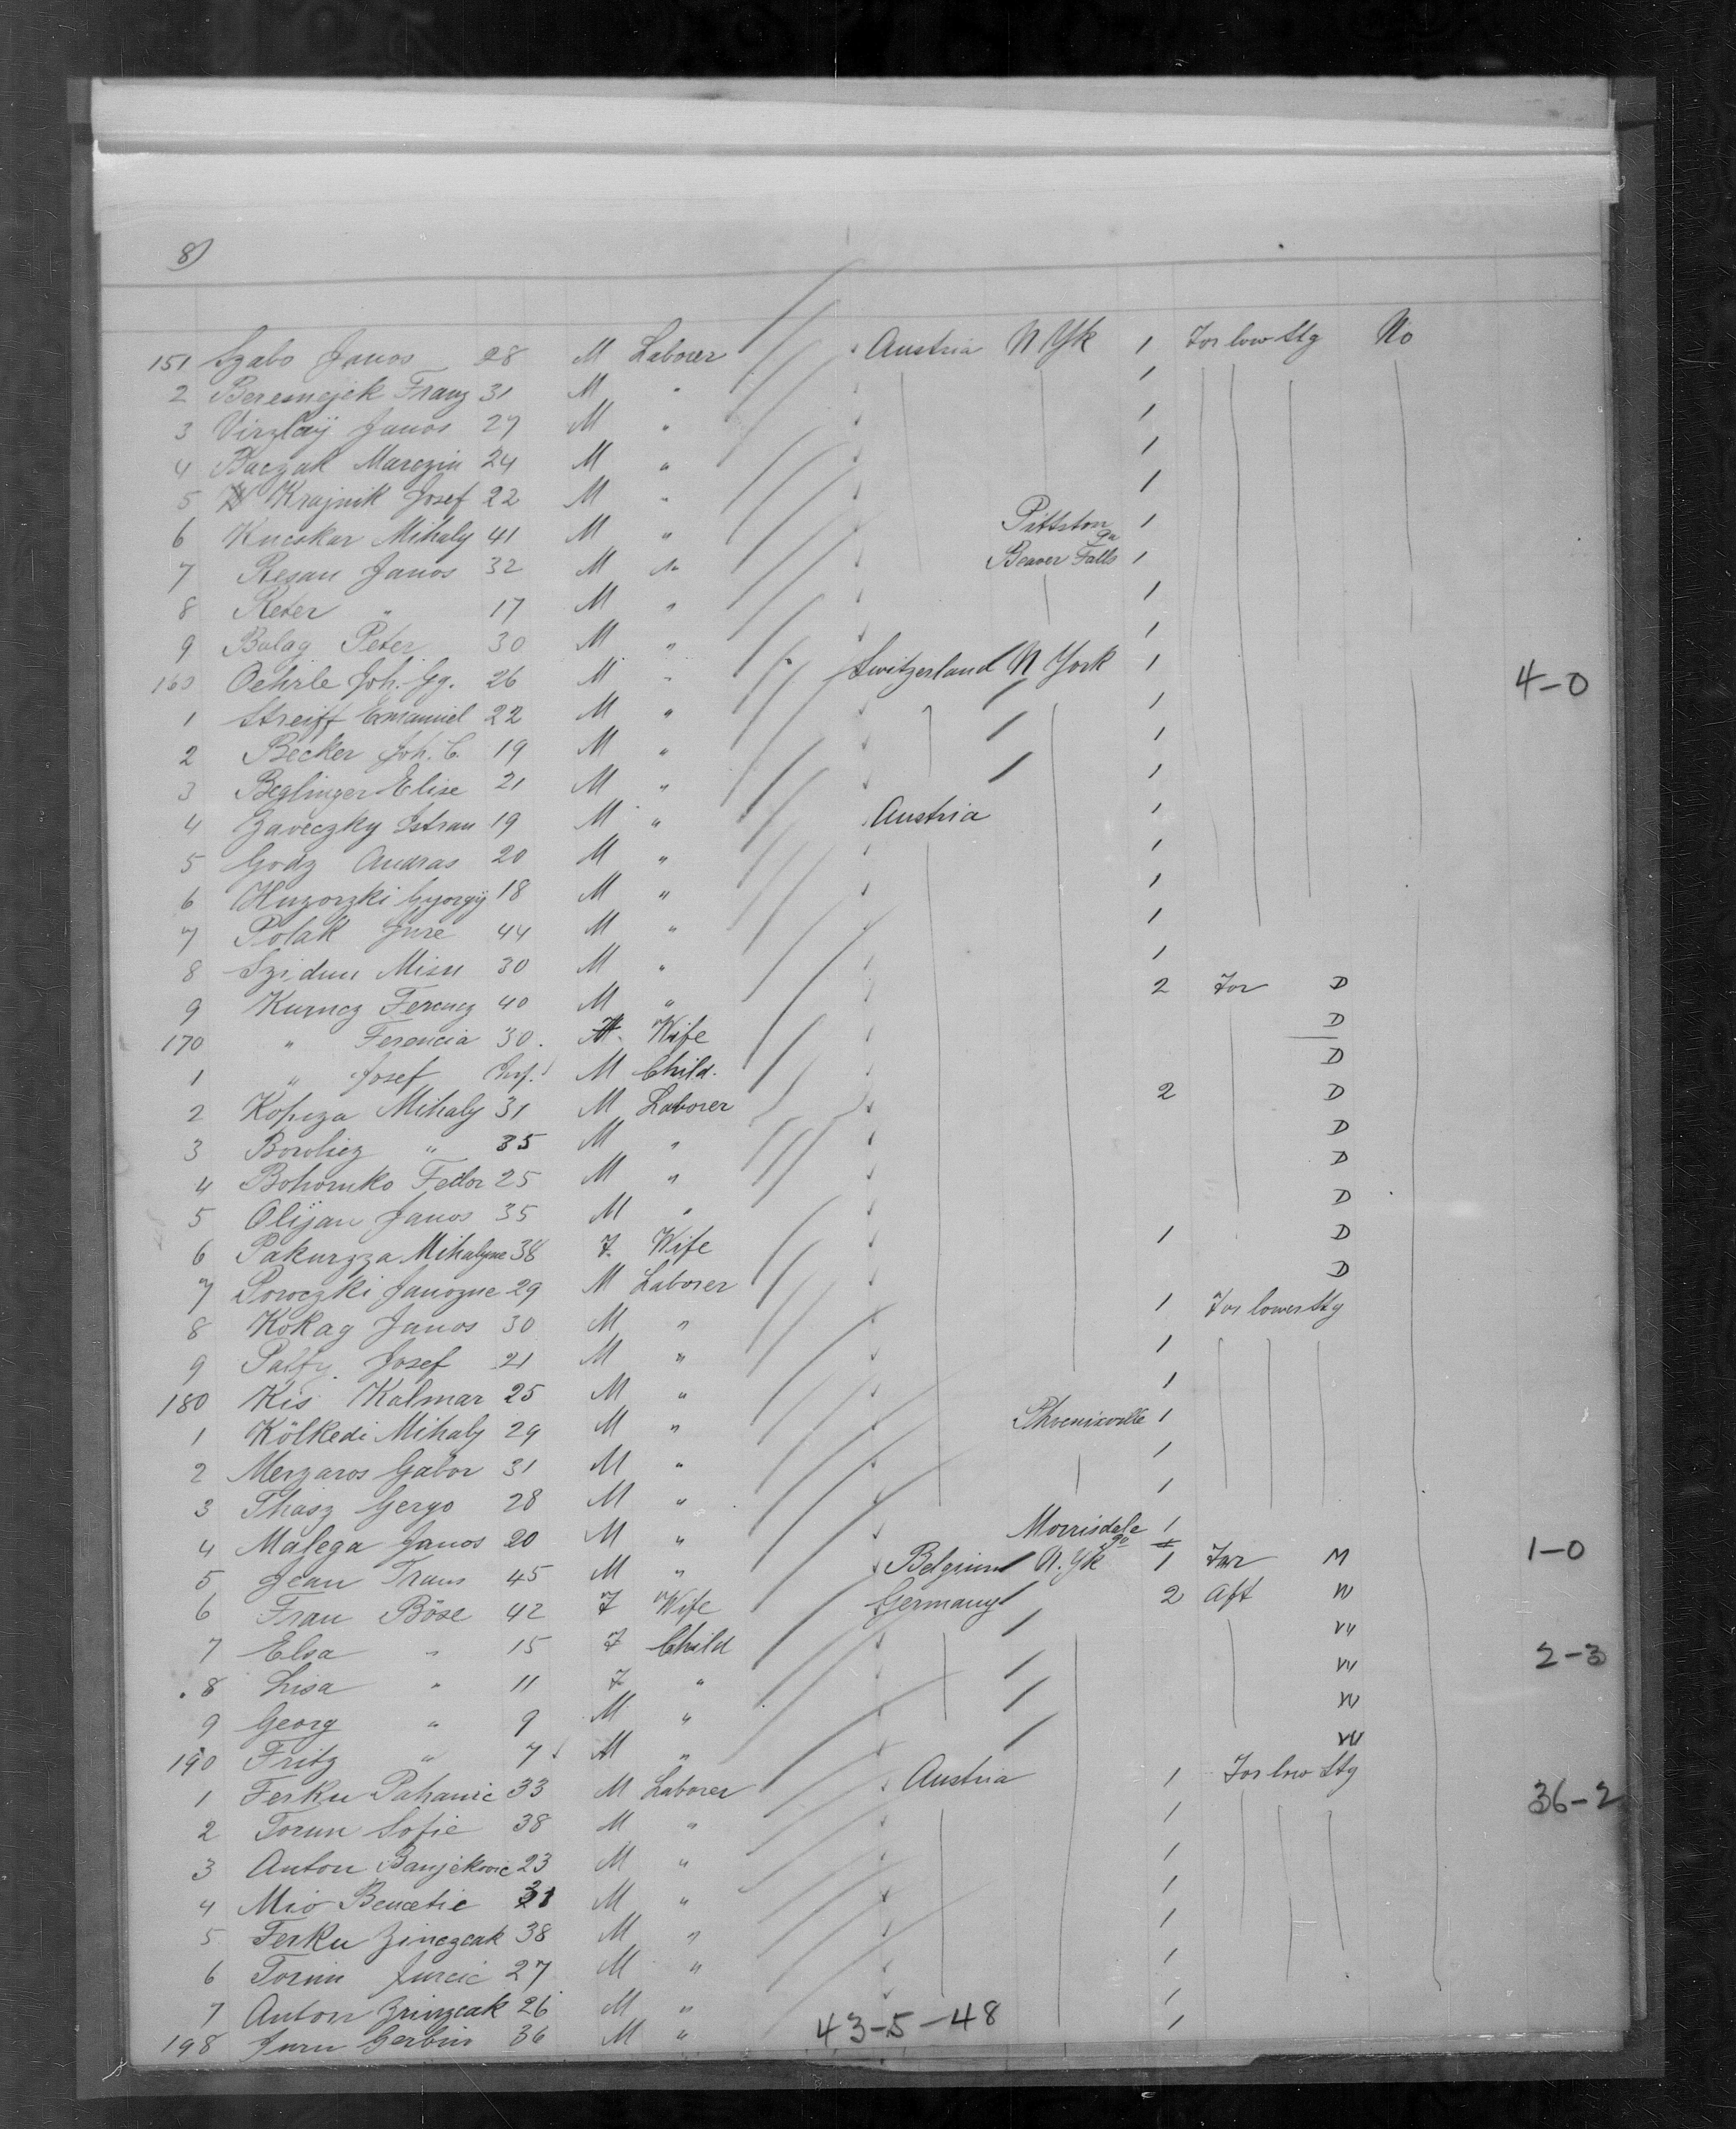 8)
151 Szabo Janos 28 M Laborer Austria N Yk 1 For low Stg No
2 Beresnejek Franz 31 M " 1
3 Virzlaÿ Janos 27 M " 1
4 Baczak Marczin 24 M " 1
5 Krajnik Josef 22 M " 1
6 Kucskar Mihaly 41 M " Pittston Pa 1
7 Resan Janos 32 M " Beaver Falls 1
8 Peter " 17 M " 1
9 Balag Peter 30 M " 1
160 Oehrle Joh. Gg. 26 M " Switzerland N York 1 4-0
1 Streiff Emanuel 22 M " 1
2 Becker Joh. C. 19 M " 1
3 Beglinger Elise 21 M " 1
4 Zaveczky Istvan 19 M " Austria 1
5 Godz Andras 20 M " 1
6 Huzorzki Györgÿ 18 M " 1
7 Polak Jure 44 M " 1
8 Szidun Misu 30 M " 1
9 Kurucz Ferencz 40 M " 2 For D
170 " Ferencia 30. Wife D
1 " Josef Inf. M Child. D
2 Kopcza Mihaly 31 M Laborer 2 D
3 Borohiez " 35 M " D
4 Bohornko Fedor 25 M " D
5 Olijan Janos 35 M " D
6 Pakurzza Mihalyne 38 F. Wife 1 D
7 Poroczki Janozne 29 M Laborer D
8 Kokag Janos 30 M " 1 For lower Stg
9 Palfy. Josef 21 M " 1
180 Kis Kalmar 25 M " 1
1 Kölkedi Mihaly 29 M " Phoenixville 1
2 Merzaros Gabor 31 M " 1
3 Thasz Gergo 28 M " 1
4 Malega Janos 20 M " Morrisdale Pa 1
5 Jean Frans 45 M " Belgium N. Yk 1 For M 1-0
6 Frau Böse 42 F Wife Germany 2 Aft W
7 Elsa " 15 F Child W 2-3
8 Lisa " 11 F " W
9 Georg " 9 M " W
190 Fritz " 7 M " W
1 Ferku Pahanic 33 M Laborer Austria 1 For low Stg 36-2
2 Torun Sofie 38 M " 1
3 Anton Banjekovic 23 M " 1
4 Mio Bencetic 31 M " 1
5 Ferku Zinczcak 38 M " 1
6 Tomin Jurcic 27 M " 1
7 Anton Zrinzcak 26 M " 1
198 Juru Gerbin 36 M " 1
43-5-48